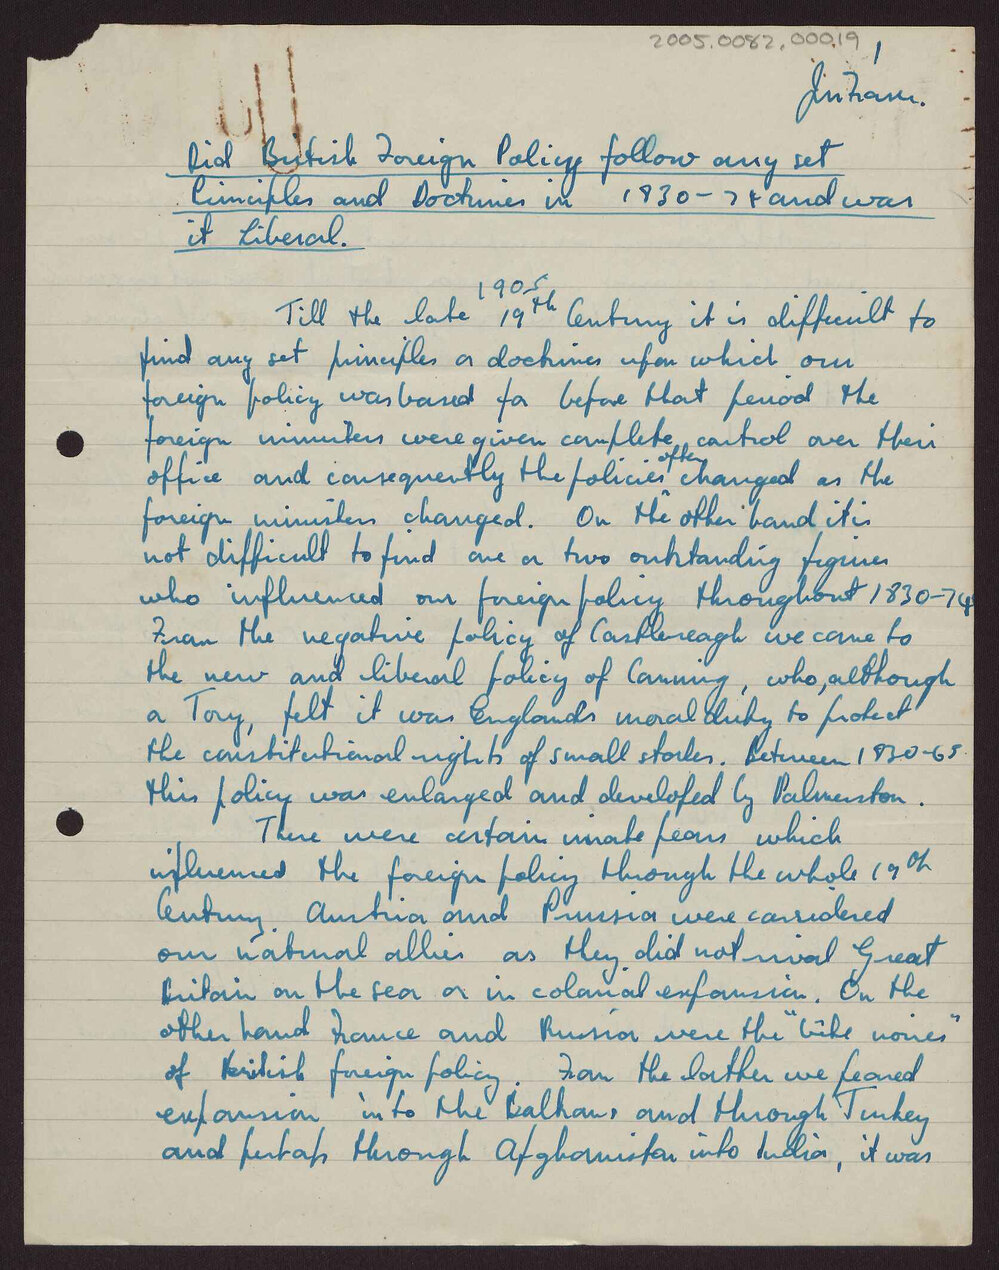 2005.0082.00019
1
Did British Foreign Policy follow any set
Principles and Doctrines in 1830-74 and was
it Liberal.
1905
Till the late 19th Century it is difficult to
find any set principles or doctrines upon which our
foreign policy was based for before that period the
foreign ministers were given complete control over their
often
office and consequently the policies changed as the
foreign ministers changed. On the other hand it is
not difficult to find one or two outstanding figures
who influenced our foreign policy throughout 1830-74
From the negative policy of Castlereagh we come to
the new and liberal policy of Canning, who, although
a Tory, felt it was Englands moral duty to protect
the constitutional rights of small states. Between 1830-65
this policy was enlarged and developed by Palmerston.
There were certain innate fears which
influenced the foreign policy through the whole 19th
Century. Austria and Prussia were considered
our natural allies as they did not rival Great
Britain on the sea or in colonial expansion. On the
other hand France and Russia were the "bête noires"
of British foreign policy. From the latter we feared
expansion into the Balkans and through Turkey
and perhaps through Afghanistan into India, it was